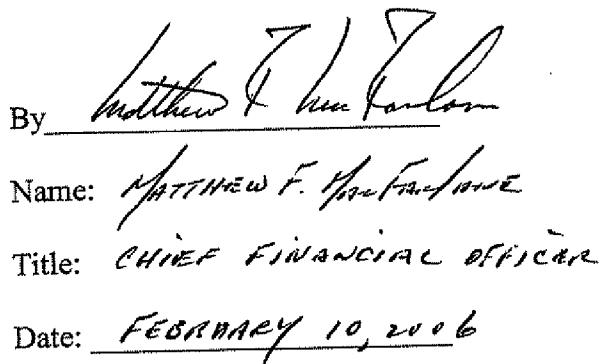 By Matthew F. MacFarlane
Name: MATTHEW F. MacFarlane
Title: CHIEF FINANCIAL OFFICER
Date: FEBRUARY 10, 2006